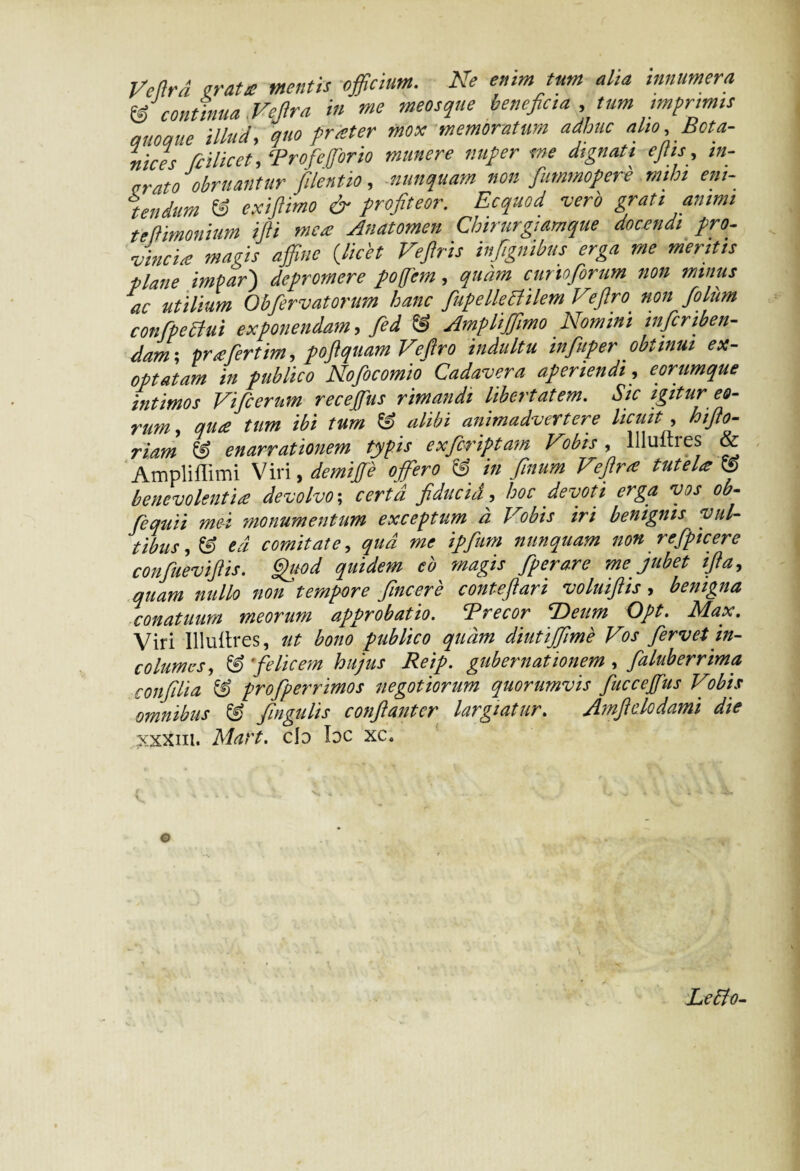 Veſtrâ gratæ mentis officium. Ne enim tum alia innumera
& continua Veſtra in me meosque beneficia , tum imprimis
quoque illud, quo præter mox memoratum adhuc alio, Bota-
nices ſcilicet, Profeſſorio munere nuper me dignati eſtis, in-
grato obruantur ſilentio, nunquam non ſummopere mihi eni-
tendum & exiſtimo & profiteor. Ecquod vero grati animi
teſtimonium iſti meæ Anatomen Chirurgiamque docendi pro-
vinciæ magis affine (licèt Veſtris inſignibus erga me meritis
plane impar) depromere poſſem, quàm curioſorum non minus
ac utilium Obſervatorum hanc ſupellectilem Veſtro non ſolùm
conſpectui exponendam, ſed & Ampliſſimo Nomini inſcriben-
dam; præſertim, poſtquam Veſtro indultu inſuper obtinui ex-
optatam in publico Noſocomio Cadavera aperiendi, eorumque
intimos Viſcerum receſſus rimandi libertatem. Sic igitur eo-
rum, quæ tum ibi tum & alibi animadvertere licuit, hiſto-
riam & enarrationem typis exſcriptam Vobis, Illuſtres &
Ampliſſimi Viri, demiſſè offero & in ſinum Veſtræ tutelæ &
benevolentiæ devolvo; certâ fiduciâ, hoc devoti erga vos ob-
ſequii mei monumentum exceptum à Vobis iri benignis vul-
tibus, & eâ comitate, quâ me ipſum nunquam non reſpicere
conſueviſtis. Quod quidem eò magis ſperare me jubet iſta,
quam nullo non tempore ſincerè conteſtari voluiſtis, benigna
conatuum meorum approbatio. Precor Deum Opt. Max.
Viri Illuſtres, ut bono publico quàm diutiſſimè Vos ſervet in-
columes, & felicem hujus Reip. gubernationem, ſaluberrima
conſilia & proſperrimos negotiorum quorumvis ſucceſſus Vobis
omnibus & ſingulis conſtanter largiatur. Amſtelodami die
xxXIII. Mart. cIↃ IↃc xc.
Lecto-